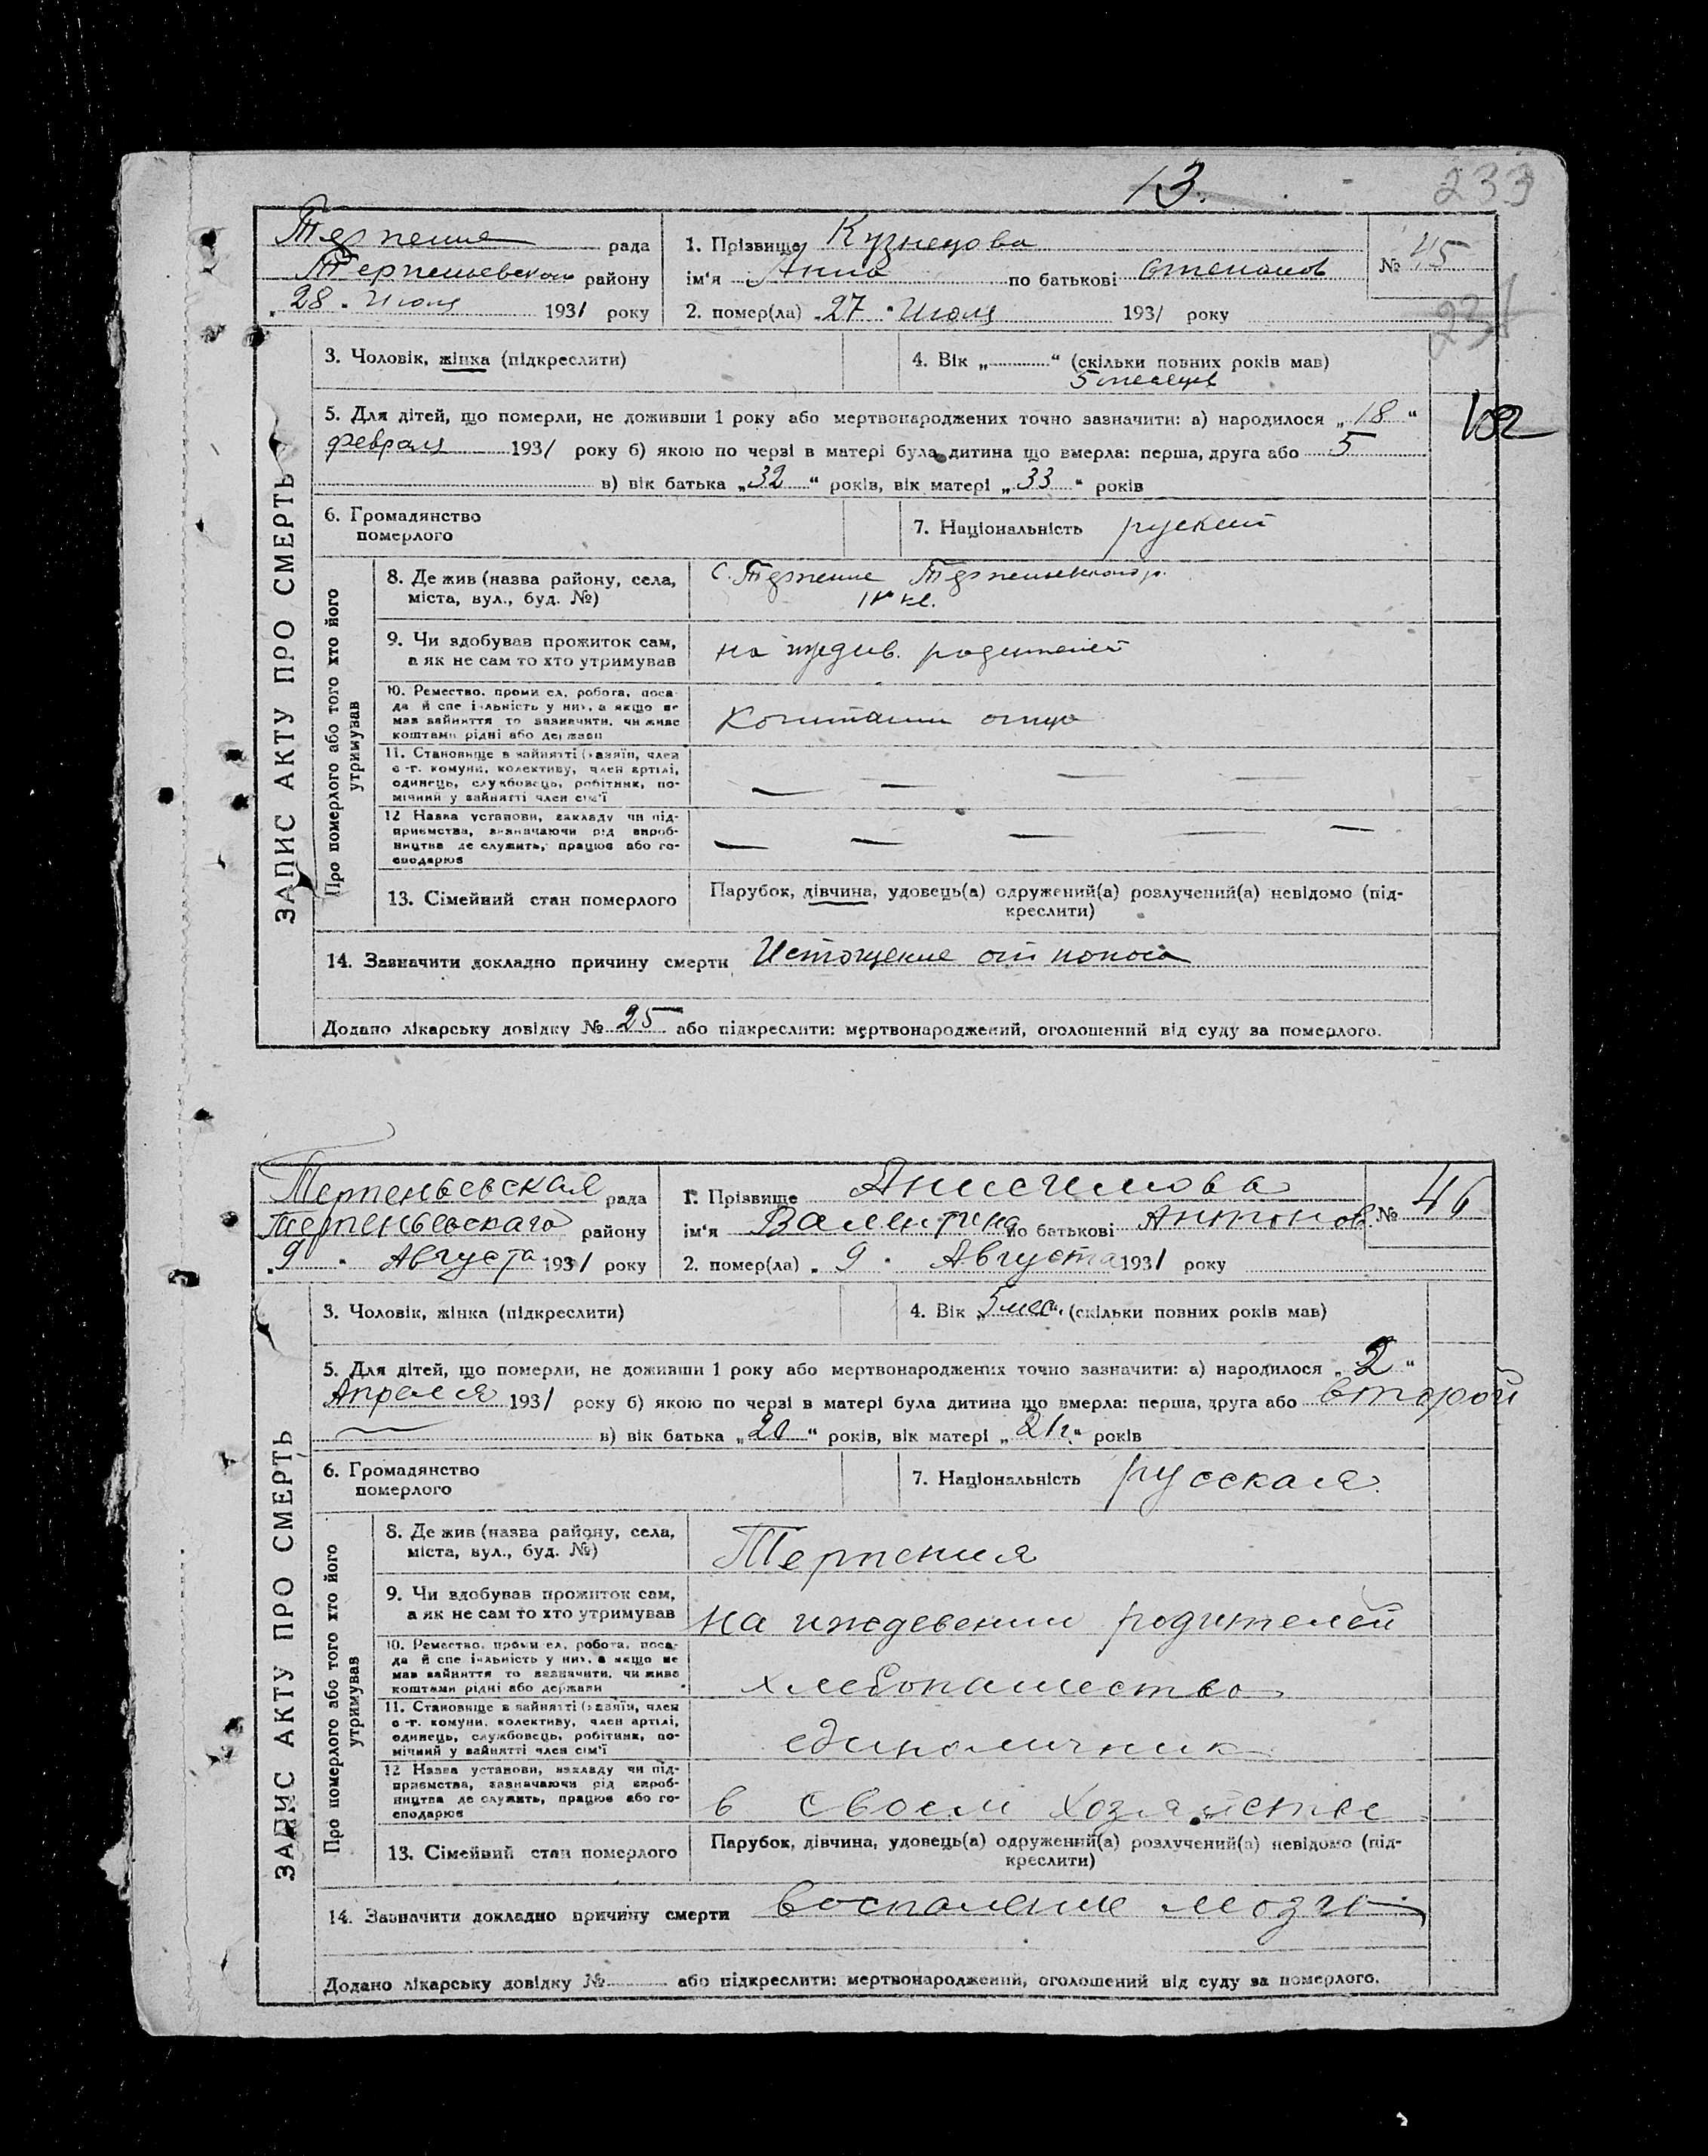 13.
233
Терпение рада
Терпеньевского району
„28" Июля 1931 року
1. Прізвище Кузнецова
ім'я Анна по батькові Степанов
2. помер(ла) „27" Июля 1931 року
№ 45
ЗАПИС АКТУ ПРО СМЕРТЬ
3. Чоловік, жінка (підкреслити)
4. Вік „ " (скільки повних років мав)
5 месяцев
5. Для дітей, що померли, не доживши 1 року або мертвонароджених точно зазначити: а) народилося „18"
102
февраля 1931 року б) якою по черзі в матері була дитина що вмерла: перша, друга або 5
в) вік батька „32" років, вік матері „33" років
6. Громадянство
померлого
7. Національність руский
Про померлого або того хто його
утримував
8. Де жив (назва району, села,
міста, вул., буд. №)
с. Терпение Терпеньевского р.
9. Чи здобував прожиток сам,
а як не сам то хто утримував
на иждив. родителей
10. Ремество, промисел, робота, поса-
да й спеціальність у них, а якщо не
мав зайняття то зазначити, чи живе
коштами рідні або держави
Коштами отца
11. Становище в зайнятті (хазяїн, член
с-г. комуни, колективу, член артілі,
одинець, службовець, робітник, по-
мічний у зайнятті член сім'ї
— — — —
12 Назва установи, закладу чи під-
приємства, зазначаючи рід вироб-
ництва де служить, працює або го-
сподарює
— — — — —
13. Сімейний стан померлого
Парубок, дівчина, удовець(а) одружений(а) розлучений(а) невідомо (під-
креслити)
14. Зазначити докладно причину смерти Истощение от поноса
Додано лікарську довідку № 25 або підкреслити: мертвонароджений, оголошений від суду за померлого.
Терпеньевская рада
Терпеньевскаго району
„9" Августа 1931 року
1. Прізвище Анисимова
ім'я Валентина по батькові Антонов.
2. помер(ла) „9" Августа 1931 року
№ 46
ЗАПИС АКТУ ПРО СМЕРТЬ
3. Чоловік, жінка (підкреслити)
4. Вік „5 мес." (скільки повних років мав)
5. Для дітей, що померли, не доживши 1 року або мертвонароджених точно зазначити: а) народилося „2"
Апреля 1931 року б) якою по черзі в матері була дитина що вмерла: перша, друга або второй
— в) вік батька „20" років, вік матері „21г." років
6. Громадянство
померлого
7. Національність русская
Про померлого або того хто його
утримував
8. Де жив (назва району, села,
міста, вул., буд. №)
Терпения
9. Чи здобував прожиток сам,
а як не сам то хто утримував
на иждевении родителей
10. Ремество, промисел, робота, поса-
да й спеціальність у них, а якщо не
мав зайняття то зазначити, чи живе
коштами рідні або держави
хлебопашество
11. Становище в зайнятті (хазяїн, член
с-г. комуни, колективу, член артілі,
одинець, службовець, робітник, по-
мічний у зайнятті член сім'ї
единоличник
12 Назва установи, закладу чи під-
приємства, зазначаючи рід вироб-
ництва де служить, працює або го-
сподарює
в своем хозяйстве
13. Сімейний стан померлого
Парубок, дівчина, удовець(а) одружений(а) розлучений(а) невідомо (під-
креслити)
14. Зазначити докладно причину смерти воспаление мозги
Додано лікарську довідку № або підкреслити: мертвонароджений, оголошений від суду за померлого.